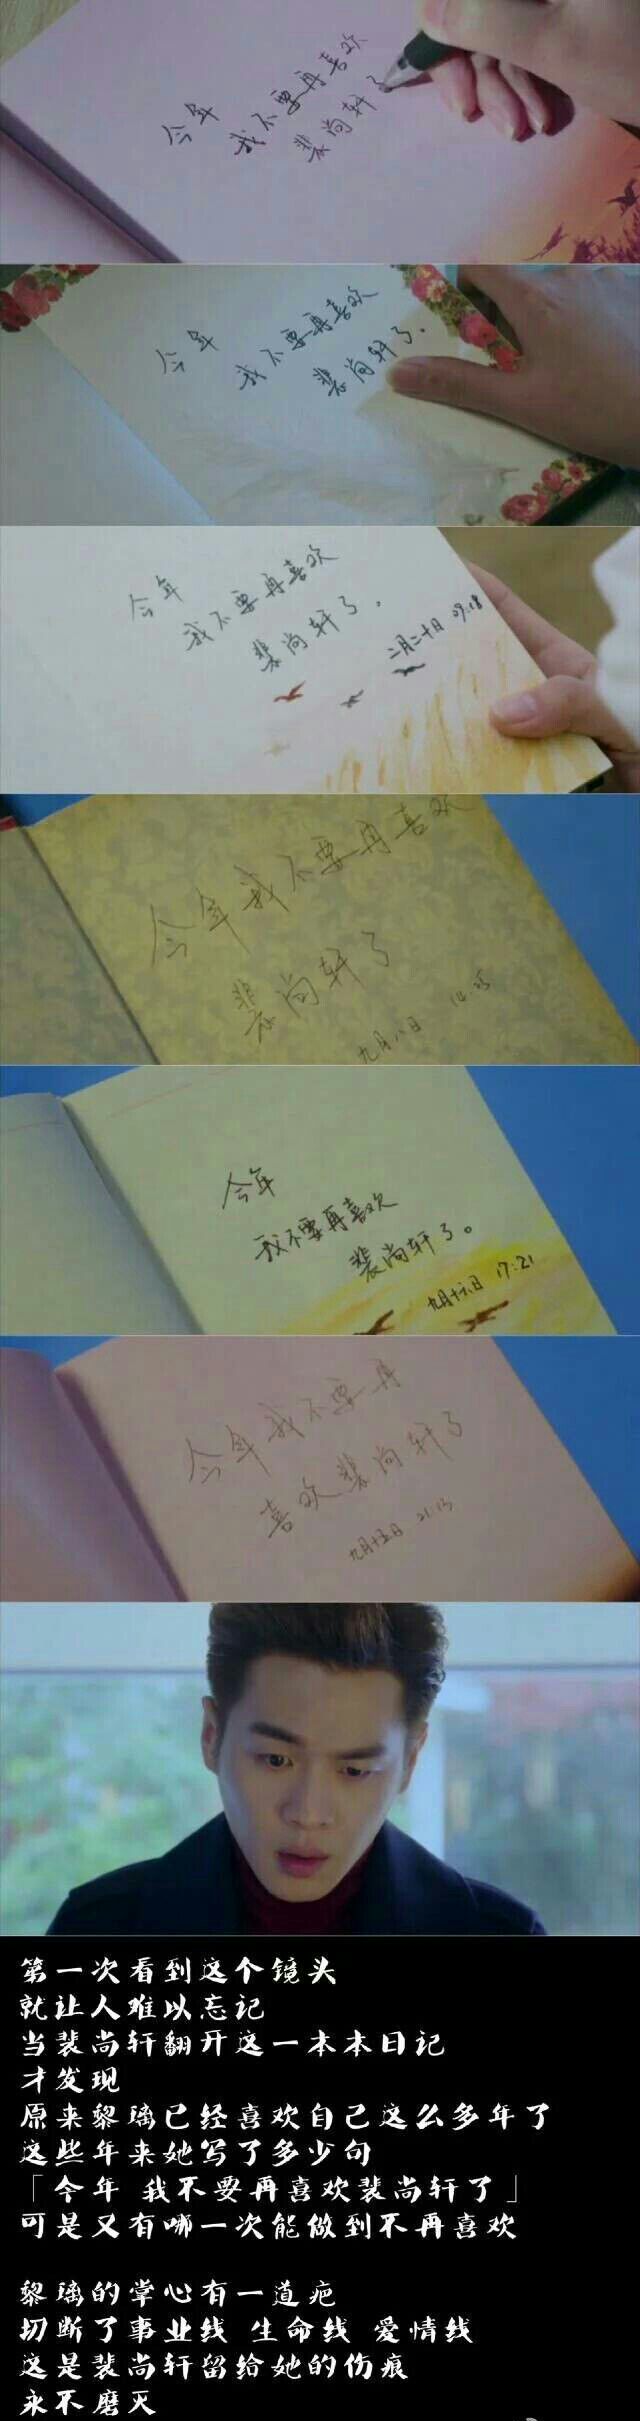 今年
我不要再喜欢
裴尚轩了
今年
我不要再喜欢
裴尚轩了。
今年
我不要再喜欢
裴尚轩了。
二月二十日 09:18
今年我不要再喜欢
裴尚轩了
九月八日
今年
我不要再喜欢
裴尚轩了。
九月十六日 17:21
今年我不要再
喜欢裴尚轩了
九月十五日 21:13
第一次看到这个镜头
就让人难以忘记
当裴尚轩翻开这一本本日记
才发现
原来黎璃已经喜欢自己这么多年了
这些年来她写了多少句
「今年 我不要再喜欢裴尚轩了」
可是又有哪一次能做到不再喜欢
黎璃的掌心有一道疤
切断了事业线 生命线 爱情线
这是裴尚轩留给她的伤痕
永不磨灭